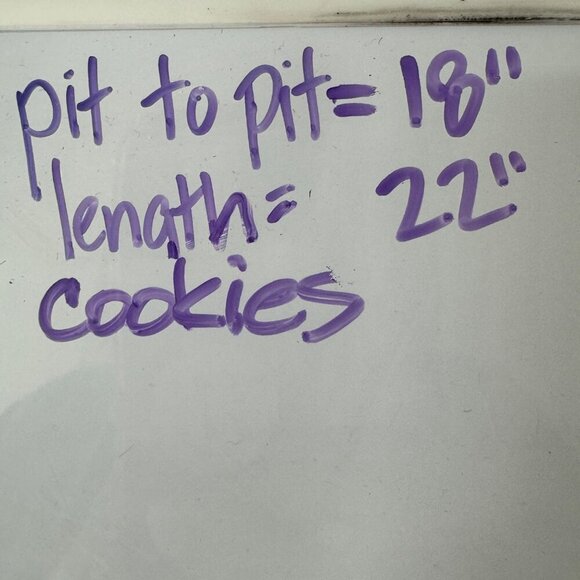 pit to pit= 18"
length= 22"
cookies